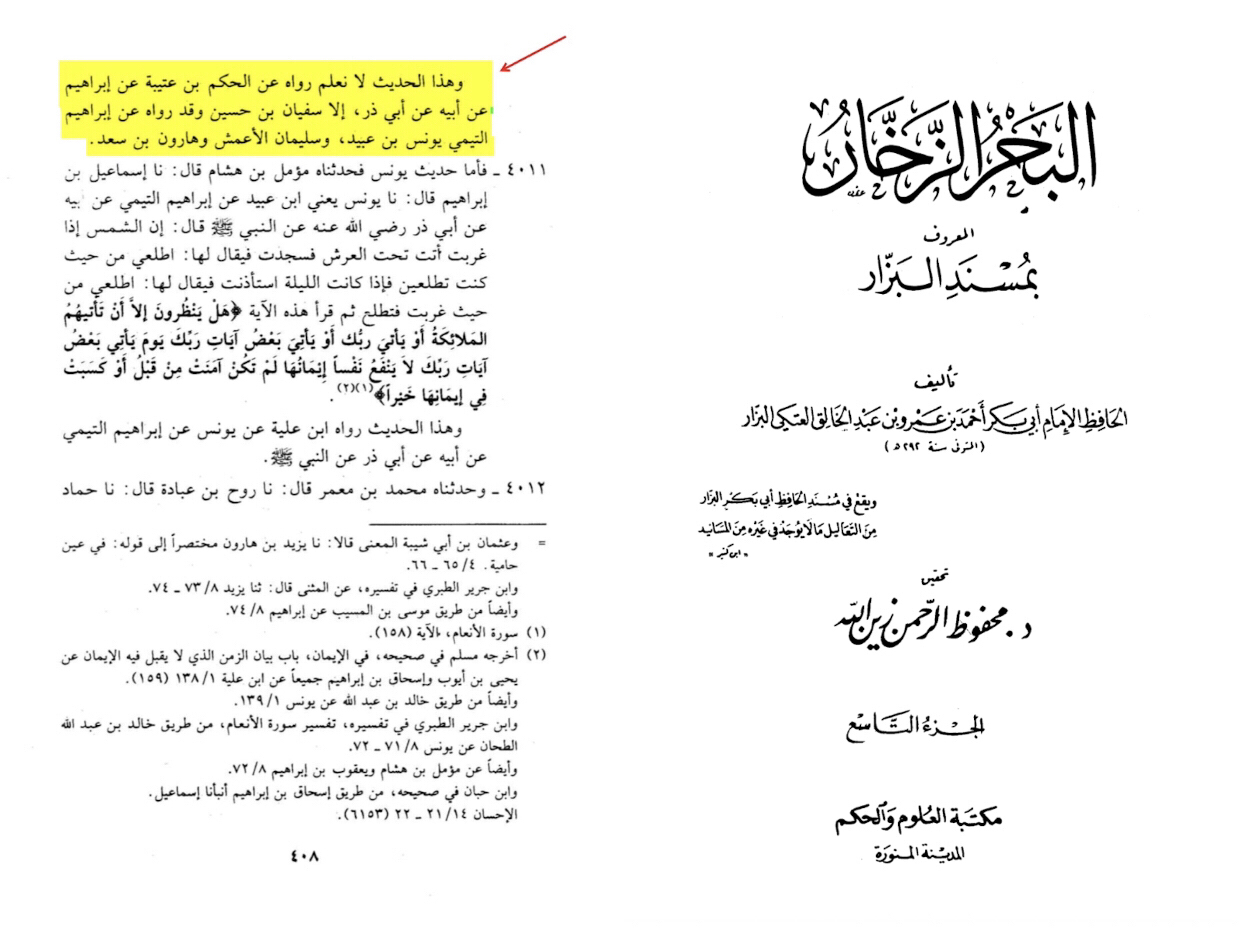 البَحْرُ الزَّخَّارُ
المعروف
بِمُسْنَدِ البَزَّار
تأليف
الحَافِظِ الإمَامِ أبي بَكر أحْمَد بن عَمرو بْن عَبْد الخَالِق العَتكي البَزَّار
(المتوفى سنة ٢٩٢ هـ)
ويقع في مُسْنَدِ الحَافِظِ أبي بَكْر البزار
مِنَ التَّعَاليل مَا لَا يُوجَدُ في غَيْرِهِ مِنَ المسَانيد
" ابن كثير "
تحقيق
د. محفوظ الرحمن زين الله
الجزءُ التَّاسع
مكتبة العلوم والحكم
المدينة المنورة
وهذا الحديث لا نعلم رواه عن الحكم بن عتيبة عن إبراهيم
عن أبيه عن أبي ذر، إلا سفيان بن حسين وقد رواه عن إبراهيم
التيمي يونس بن عبيد، وسليمان الأعمش وهارون بن سعد.
٤٠١١ ـ فأما حديث يونس فحدثناه مؤمل بن هشام قال: نا إسماعيل بن
إبراهيم قال: نا يونس يعني ابن عبيد عن إبراهيم التيمي عن أبيه
عن أبي ذر رضي الله عنه عن النبي ﷺ قال: إن الشمس إذا
غربت أتت تحت العرش فسجدت فيقال لها: اطلعي من حيث
كنت تطلعين فإذا كانت الليلة استأذنت فيقال لها: اطلعي من
حيث غربت فتطلع ثم قرأ هذه الآية ﴿هَلْ يَنْظُرونَ إلاَّ أَنْ تَأتيهُمُ
المَلائِكَةُ أَوْ يَأتيَ ربُّك أَوْ يَأتِيَ بَعْضُ آيَاتِ رَبِّكَ يَومَ يَأتِي بَعْضُ
آيَاتِ رَبِّكَ لاَ يَنْفَعُ نَفْساً إيْمَانُهَا لَمْ تَكُنْ آمَنَتْ مِنْ قَبْلُ أَوْ كَسَبَتْ
فِي إيمَانِهَا خَيْراً﴾(١)(٢).
وهذا الحديث رواه ابن علية عن يونس عن إبراهيم التيمي
عن أبيه عن أبي ذر عن النبي ﷺ.
٤٠١٢ ـ وحدثناه محمد بن معمر قال: نا روح بن عبادة قال: نا حماد
= وعثمان بن أبي شيبة المعنى قالا: نا يزيد بن هارون مختصراً إلى قوله: في عين
حامية. ٤/ ٦٥ ـ ٦٦.
وابن جرير الطبري في تفسيره، عن المثنى قال: ثنا يزيد ٨/ ٧٣ ـ ٧٤.
وأيضاً من طريق موسى بن المسيب عن إبراهيم ٨/ ٧٤.
(١) سورة الأنعام، الآية (١٥٨).
(٢) أخرجه مسلم في صحيحه، في الإيمان، باب بيان الزمن الذي لا يقبل فيه الإيمان عن
يحيى بن أيوب وإسحاق بن إبراهيم جميعاً عن ابن علية ١/ ١٣٨ (١٥٩).
وأيضاً من طريق خالد بن عبد الله عن يونس ١/ ١٣٩.
وابن جرير الطبري في تفسيره، تفسير سورة الأنعام، من طريق خالد بن عبد الله
الطحان عن يونس ٨/ ٧١ ـ ٧٢.
وأيضاً عن مؤمل بن هشام ويعقوب بن إبراهيم ٨/ ٧٢.
وابن حبان في صحيحه، من طريق إسحاق بن إبراهيم أنبأنا إسماعيل.
الإحسان ١٤/ ٢١ ـ ٢٢ (٦١٥٣).
٤٠٨